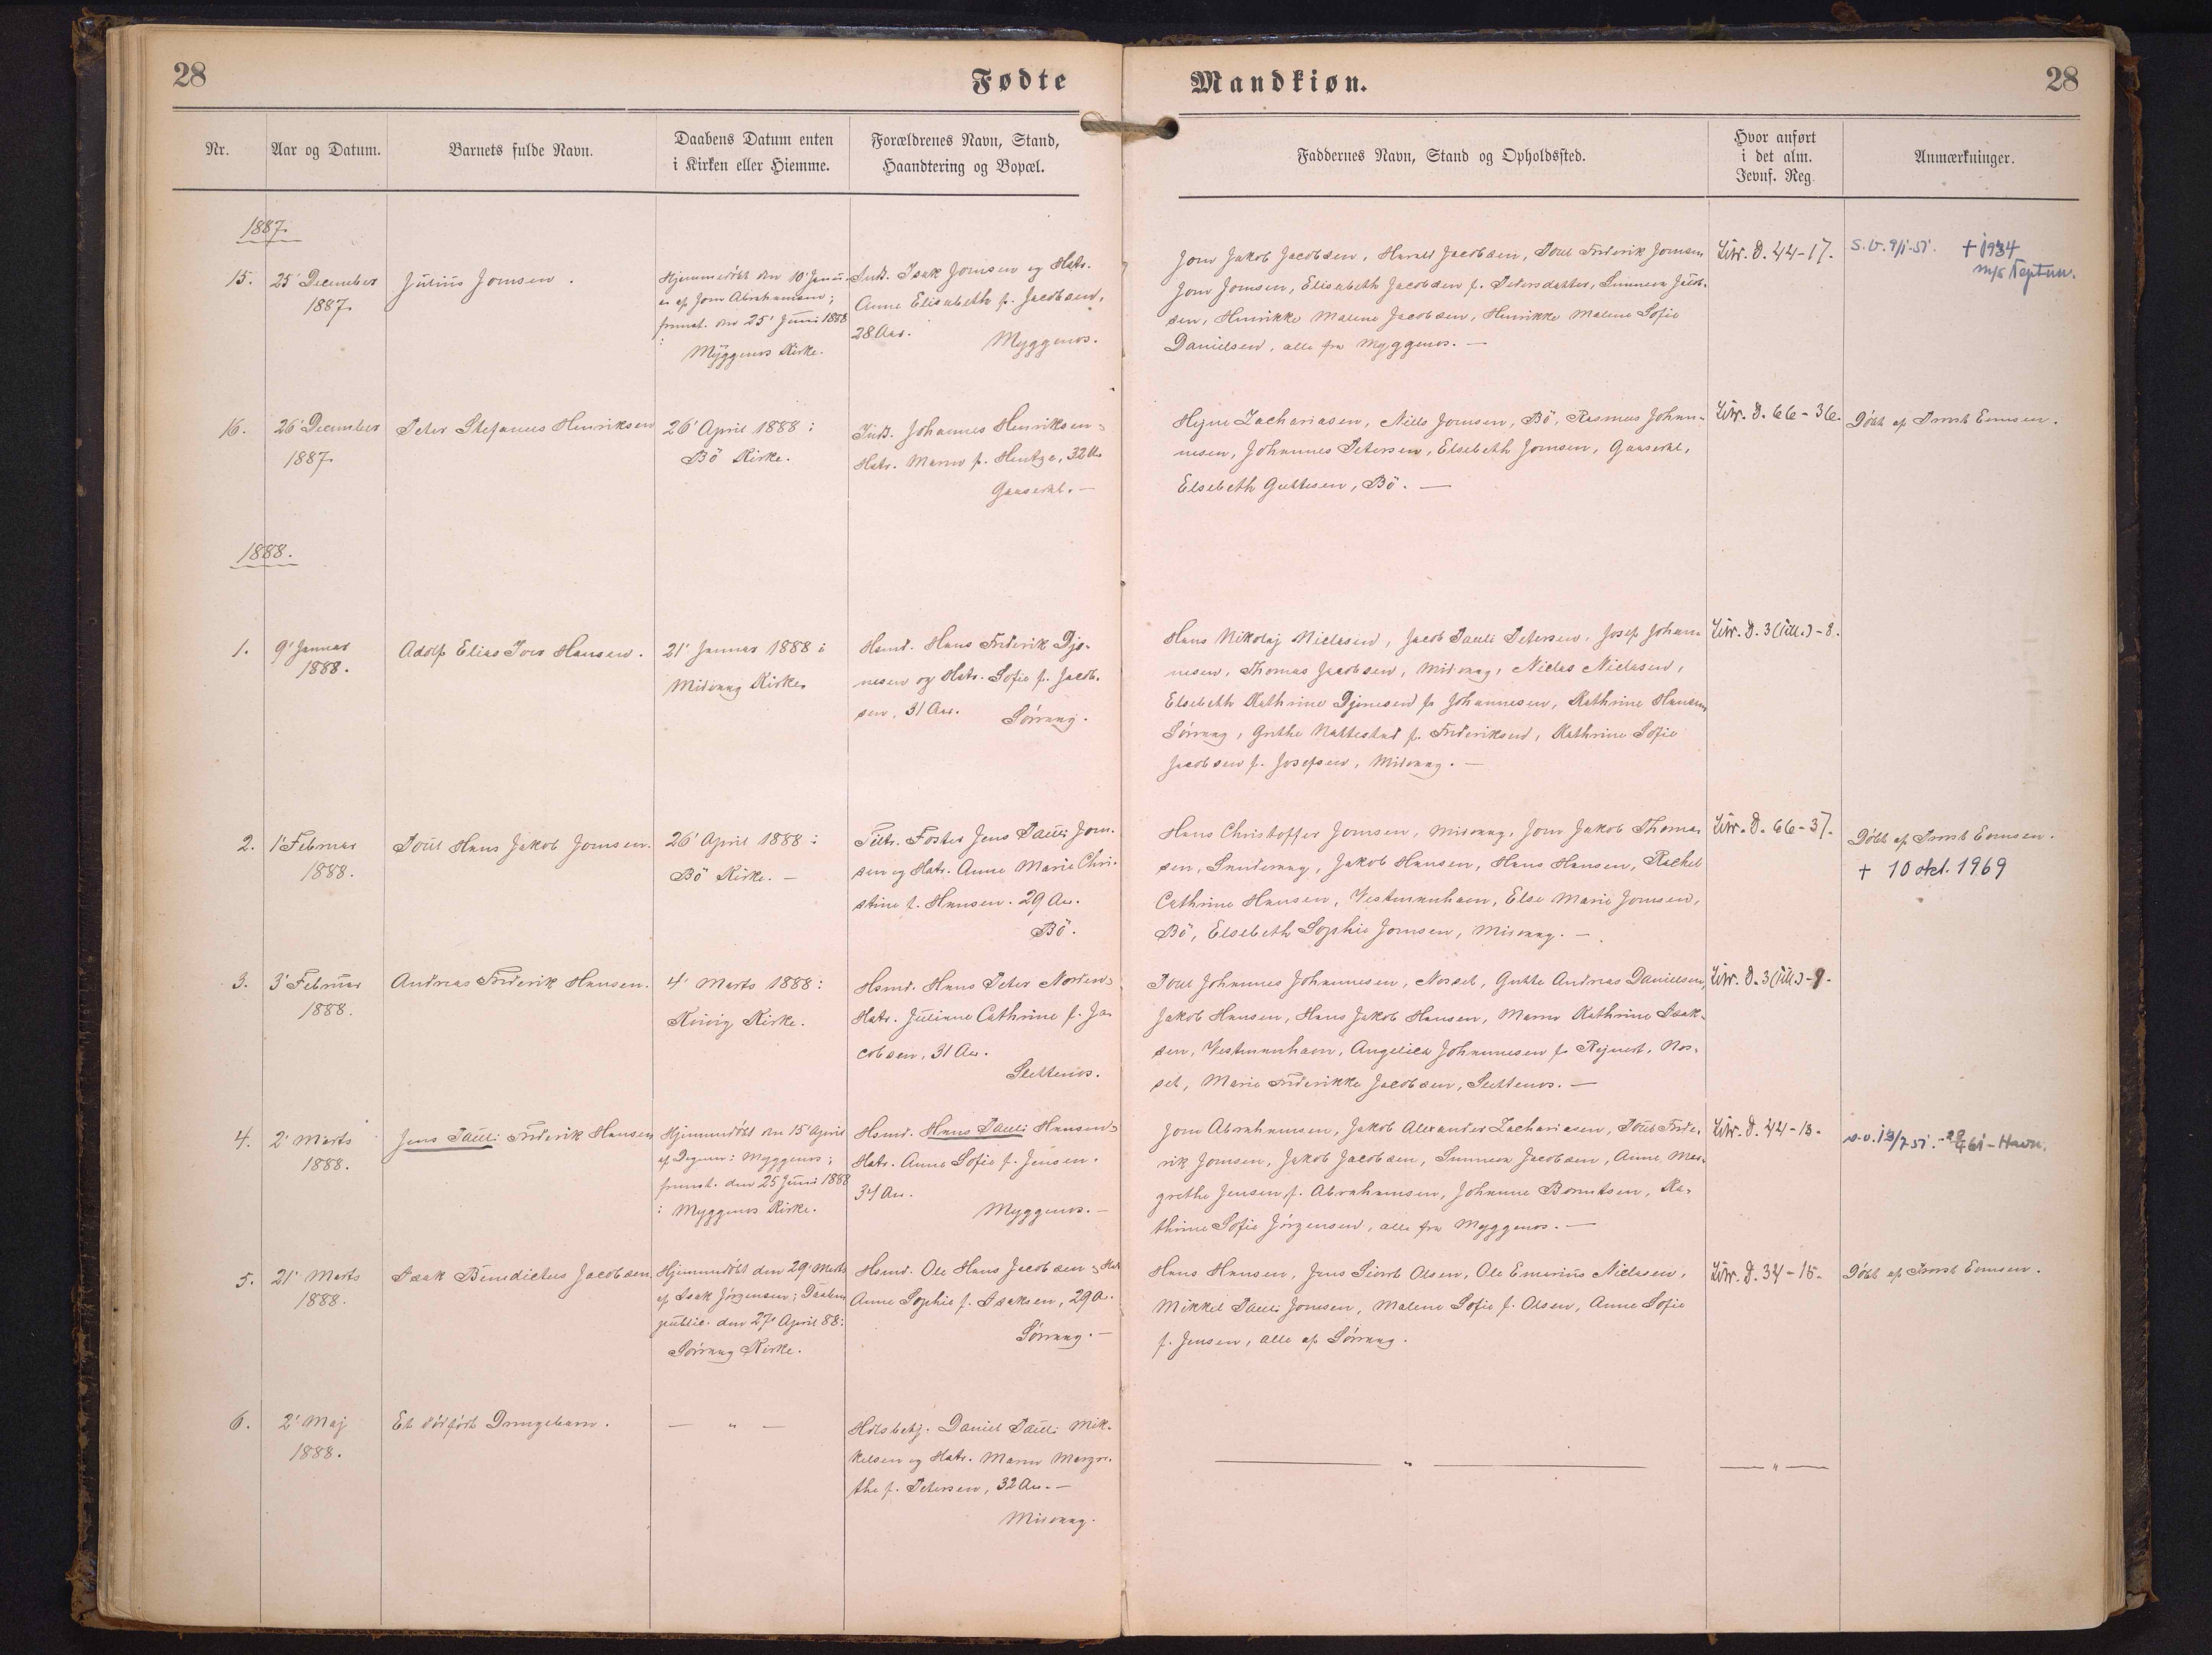 28
Fødte
Nr.
Aar og Datum.
Barnets fulde Navn.
Daabens Datum enten
i Kirken eller Hiemme.
Forældrenes Navn, Stand,
Haandtering og Bopæl.
1887.
15.
25' December
1887.
Julius Joensen.
Hjemmedöbt den 10' Janu-
ar af Joen Abrahamsen;
fremst. den 25' Juni 1888
i
Myggenæs Kirke.
Isak Joensen og Hstr.
Anne Elisabeth f. Jacobsen,
28 Aar.
Myggenæs.
16.
26' December
1887.
Peter Stefanus Henriksen
26' April 1888 i
Bö Kirke.
Johannes Henriksen
Hstr. Maren f. Hentze, 32 A.
Gaasedal. —
1888.
1.
9' Januar
1888.
Adolf Elias Hansen.
21' Januar 1888 i
Midvaag Kirke.
Hsmd. Hans Frederik Djo-
nesen og Hstr. Sofie f. Jacob-
sen, 31 Aar.
Sörvaag.
2.
1' Februar
1888.
Poul Hans Jakob Joensen.
26' April 1888 i
Bö Kirke. —
Jens Pauli Joen-
sen og Hstr. Anne Marie Chri-
stine f. Hansen. 29 Aar.
Bö.
3.
3' Februar
1888.
Andreas Frederik Hansen.
4' Marts 1888 i
Kvivig Kirke.
Hsmd. Hans Peter
Hstr. Julianne Cathrine f. Ja-
cobsen, 31 Aar.
Slettenæs.
4.
2' Marts
1888.
Jens Pauli Frederik Hansen
Hjemmedöbt den 15' April
af Degnen i Myggenæs;
fremst. den 25 Juni 1888
i Myggenæs Kirke.
Hsmd. Hans Pauli Hansen
Hstr. Anne Sofie f. Jensen.
34 Aar.
Myggenæs. —
5.
21' Marts
1888.
Isak Benedictus Jacobsen.
Hjemmedöbt den 29' Marts
af Isak Jörgensen; Daaben
public. den 27' April 88 i
Sörvaag Kirke.
Hsmd. Ole Hans Jacobsen & Hstr
Anne Sophie f. Isaksen, 29 A.
Sörvaag. —
6.
2' Maj
1888.
Et dödfödt Drengebarn.
— " —
Daniel Pauli Mik-
kelsen og Hstr. Maren Margre-
the f. Petersen, 32 Aar. —
Midvaag.
Mandkiøn.
28
Faddernes Navn, Stand og Opholdssted.
Hvor anført
i det alm.
Jevnf. Reg.
Anmærkninger.
Joen Jakob Jacobsen, Harald Jacobsen, Poul Frederik Joensen
Joen Joensen, Elisabeth Jacobsen f. Petersdatter, Sunneva Jacob-
sen, Henrikke Malene Jacobsen, Henrikke Malene Sofie
Danielsen, alle fra Myggenæs. —
Litr. D. 44-17.
s.v. 9/1-51.
+ 1934
m/s Neptun.
Hejne Zachariasen, Niels Joensen, Bö, Rasmus Johan-
nesen, Johannes Petersen, Elsebeth Joensen, Gaasedal,
Elsebeth Guttesen, Bö. —
Litr. D. 66-36.
Döbt af Provst Evensen.
Hans Nikolaj Niclasen, Jacob Pauli Petersen, Josef Johan-
nesen, Thomas Jacobsen, Midvaag, Niclas Niclasen,
Elsebeth Kathrine Djonesen f. Johannesen, Kathrine Hansen
Sörvaag, Grethe Nattestad f. Frederiksen, Kathrine Sofie
Jacobsen f. Josefsen, Midvaag. —
Litr. D. 3 (Till.) - 8.
Hans Christoffer Joensen, Midvaag, Joen Jakob Thomas-
sen, Sandevaag, Jakob Hansen, Hans Hansen, Rachel
Cathrine Hansen, Vestmanhavn, Else Marie Joensen,
Bö, Elsebeth Sophie Joensen, Midvaag. —
Litr. D. 66-37.
Döbt af Provst Evensen.
+ 10 okt. 1969
Poul Johannes Johannesen, Norset, Gutte Andreas Danielsen,
Jakob Hansen, Hans Jakob Hansen, Maren Kathrine Isak-
sen, Vestmanhavn, Angelica Johannesen f. Rejnert, Nor-
set, Marie Frederikke Jacobsen, Slettenæs. —
Litr. D. 3 (Till.) - 9.
Joen Abrahamsen, Jakob Alexander Zachariasen, Poul Frede-
rik Joensen, Jakob Jacobsen, Sunneva Jacobsen, Anne Mar-
grethe Jensen f. Abrahamsen, Johanne Berntsen, Ka-
thrine Sofie Jörgensen, alle fra Myggenæs. —
Litr. D. 44-18.
s.v. 13/7 51. - 28/4 61 - Havn.
Hans Hansen, Jens Sivert Olsen, Ole Emarius Niclasen,
Mikkel Pauli Joensen, Malene Sofie f. Olsen, Anne Sofie
f. Jensen, alle af Sörvaag.
Litr. D. 34-15.
Döbt af Provst Evensen.
— " —
— " —